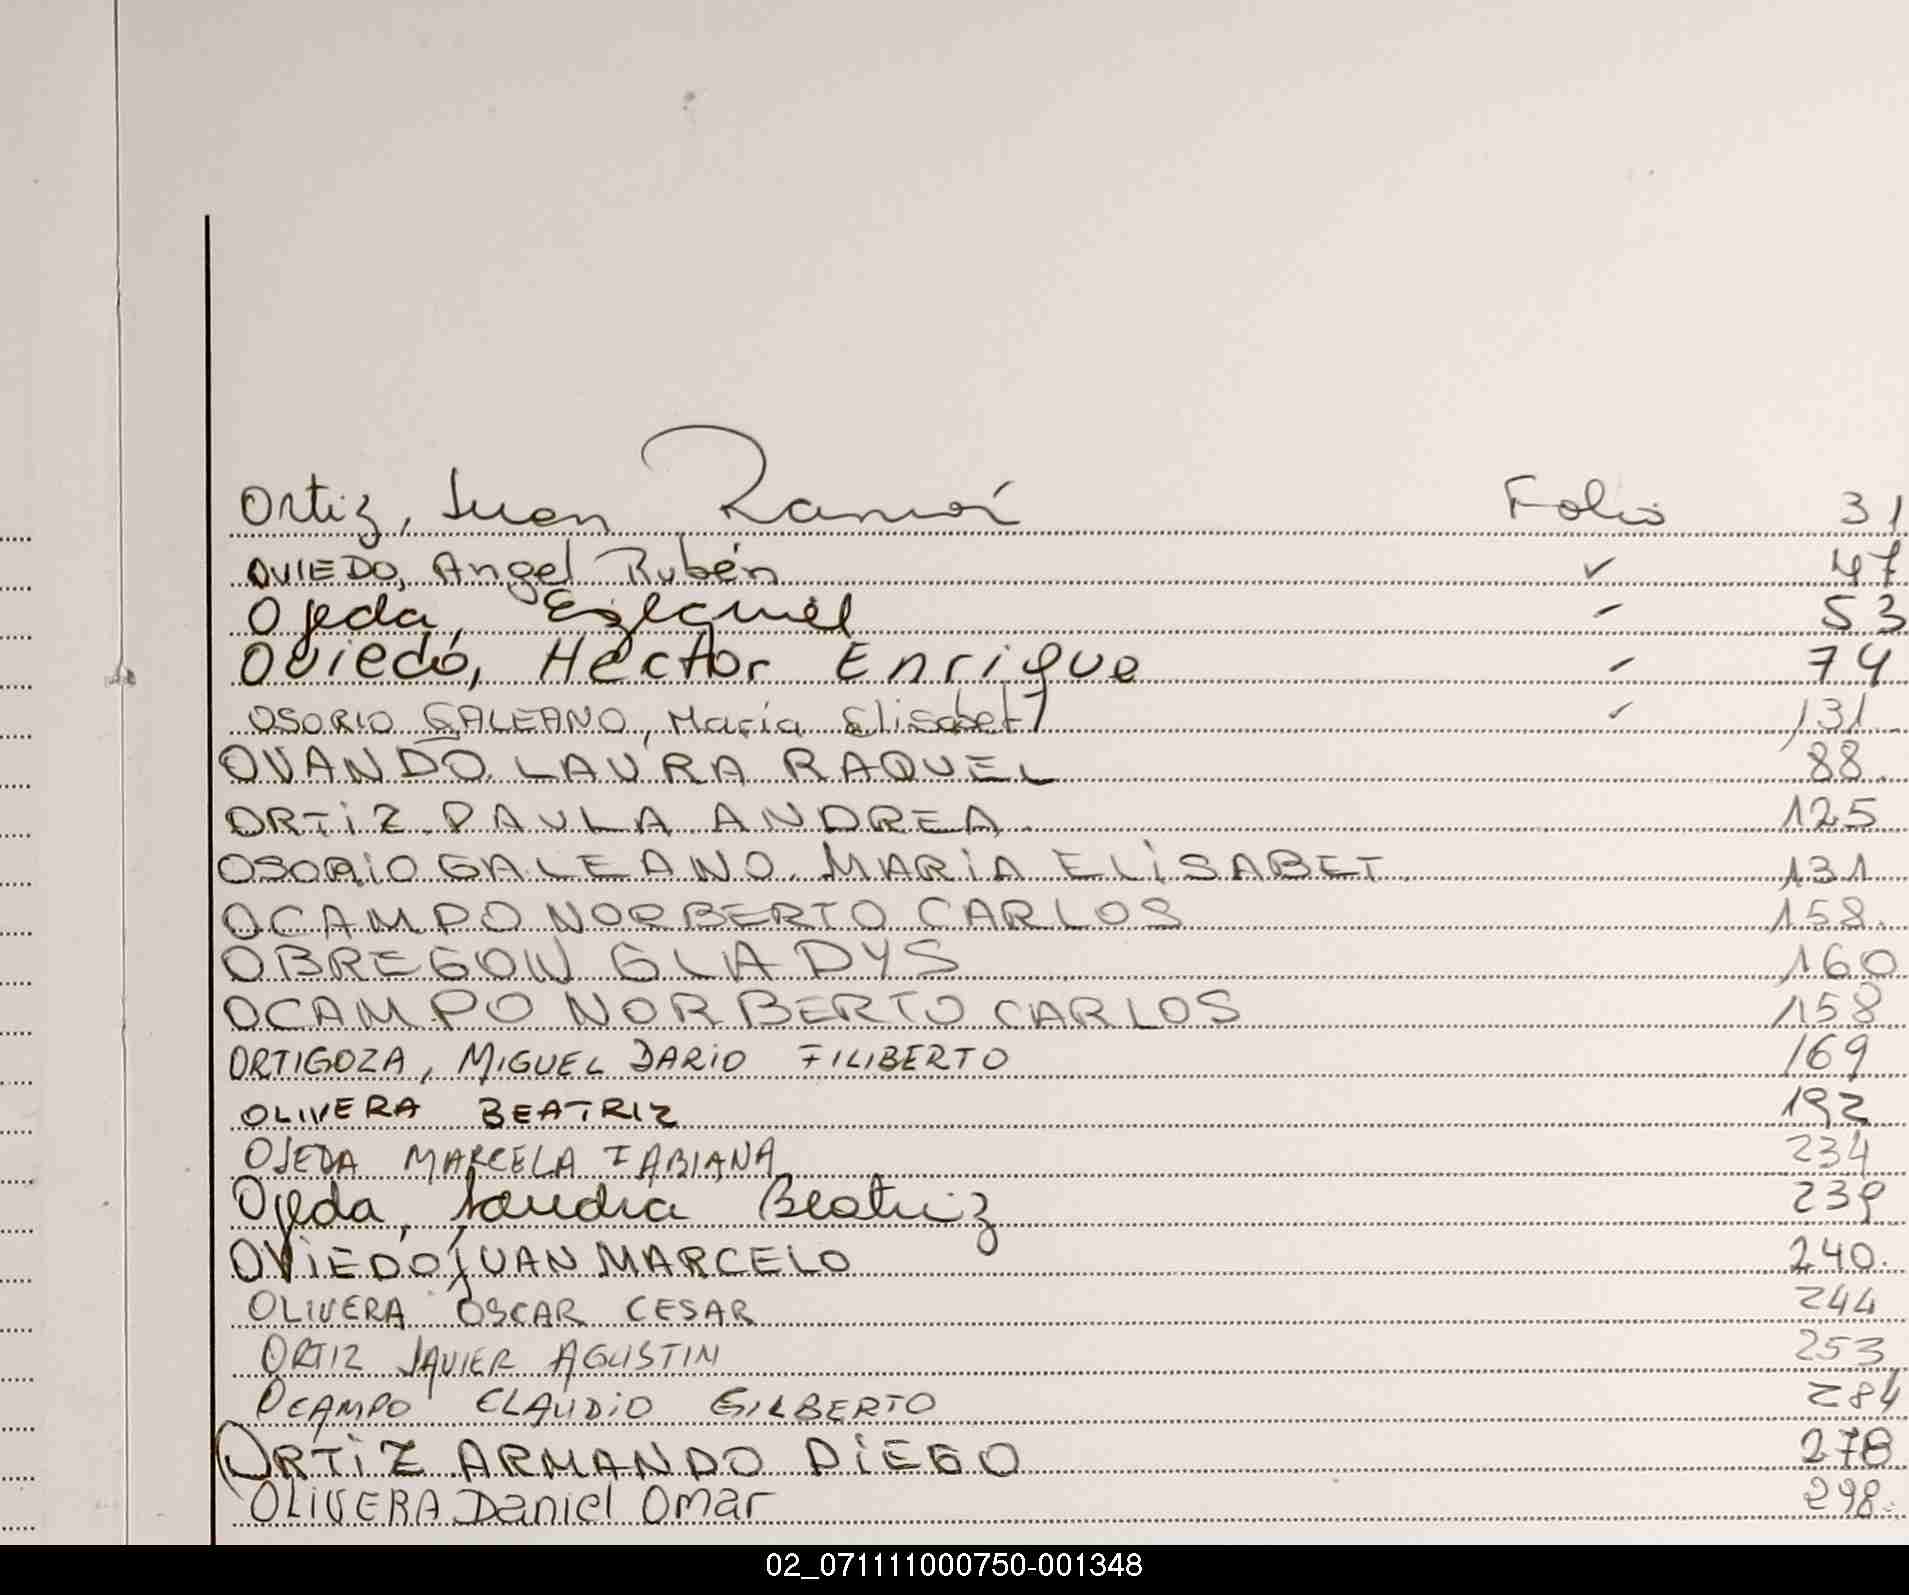 Ortiz, Juan Ramón Folio 31
OVIEDO, Angel Rubén ✓ 47
Ojeda, Ezequiel - 53
Oviedo, Hector Enrique - 74
OSORIO GALEANO, María Elisabet ✓ 131
OVANDO LAURA RAQUEL 88.
ORTIZ PAULA ANDREA 125
OSORIO GALEANO MARIA ELISABET. 131
OCAMPO NORBERTO CARLOS 158.
OBREGON GLADYS 160
OCAMPO NORBERTO CARLOS 158
ORTIGOZA, MIGUEL DARIO FILIBERTO 169
OLIVERA BEATRIZ 192
OJEDA MARCELA FABIANA 234
Ojeda, Sandra Beatriz 239
OVIEDO JUAN MARCELO 240.
OLIVERA OSCAR CESAR 244
ORTIZ JAVIER AGUSTIN 253
OCAMPO CLAUDIO GILBERTO 284
ORTIZ ARMANDO DIEGO 278
OLIVERA Daniel Omar 298.
02_071111000750-001348